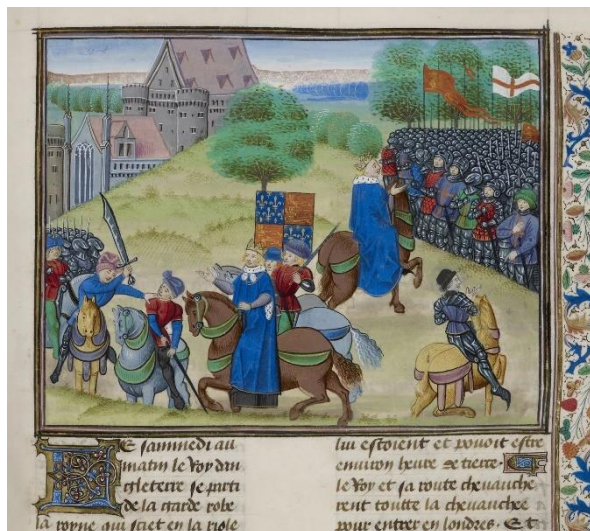 LE sammedi au
matin le Roy dan
gleterre se parti
de la garde robe
la royne qui siet en la riole
lui estoient et pouoit estre
environ heure de tierce.
le Roy et sa route chevauche
rent toutte la chevauchee
pour entrer en londres. Et